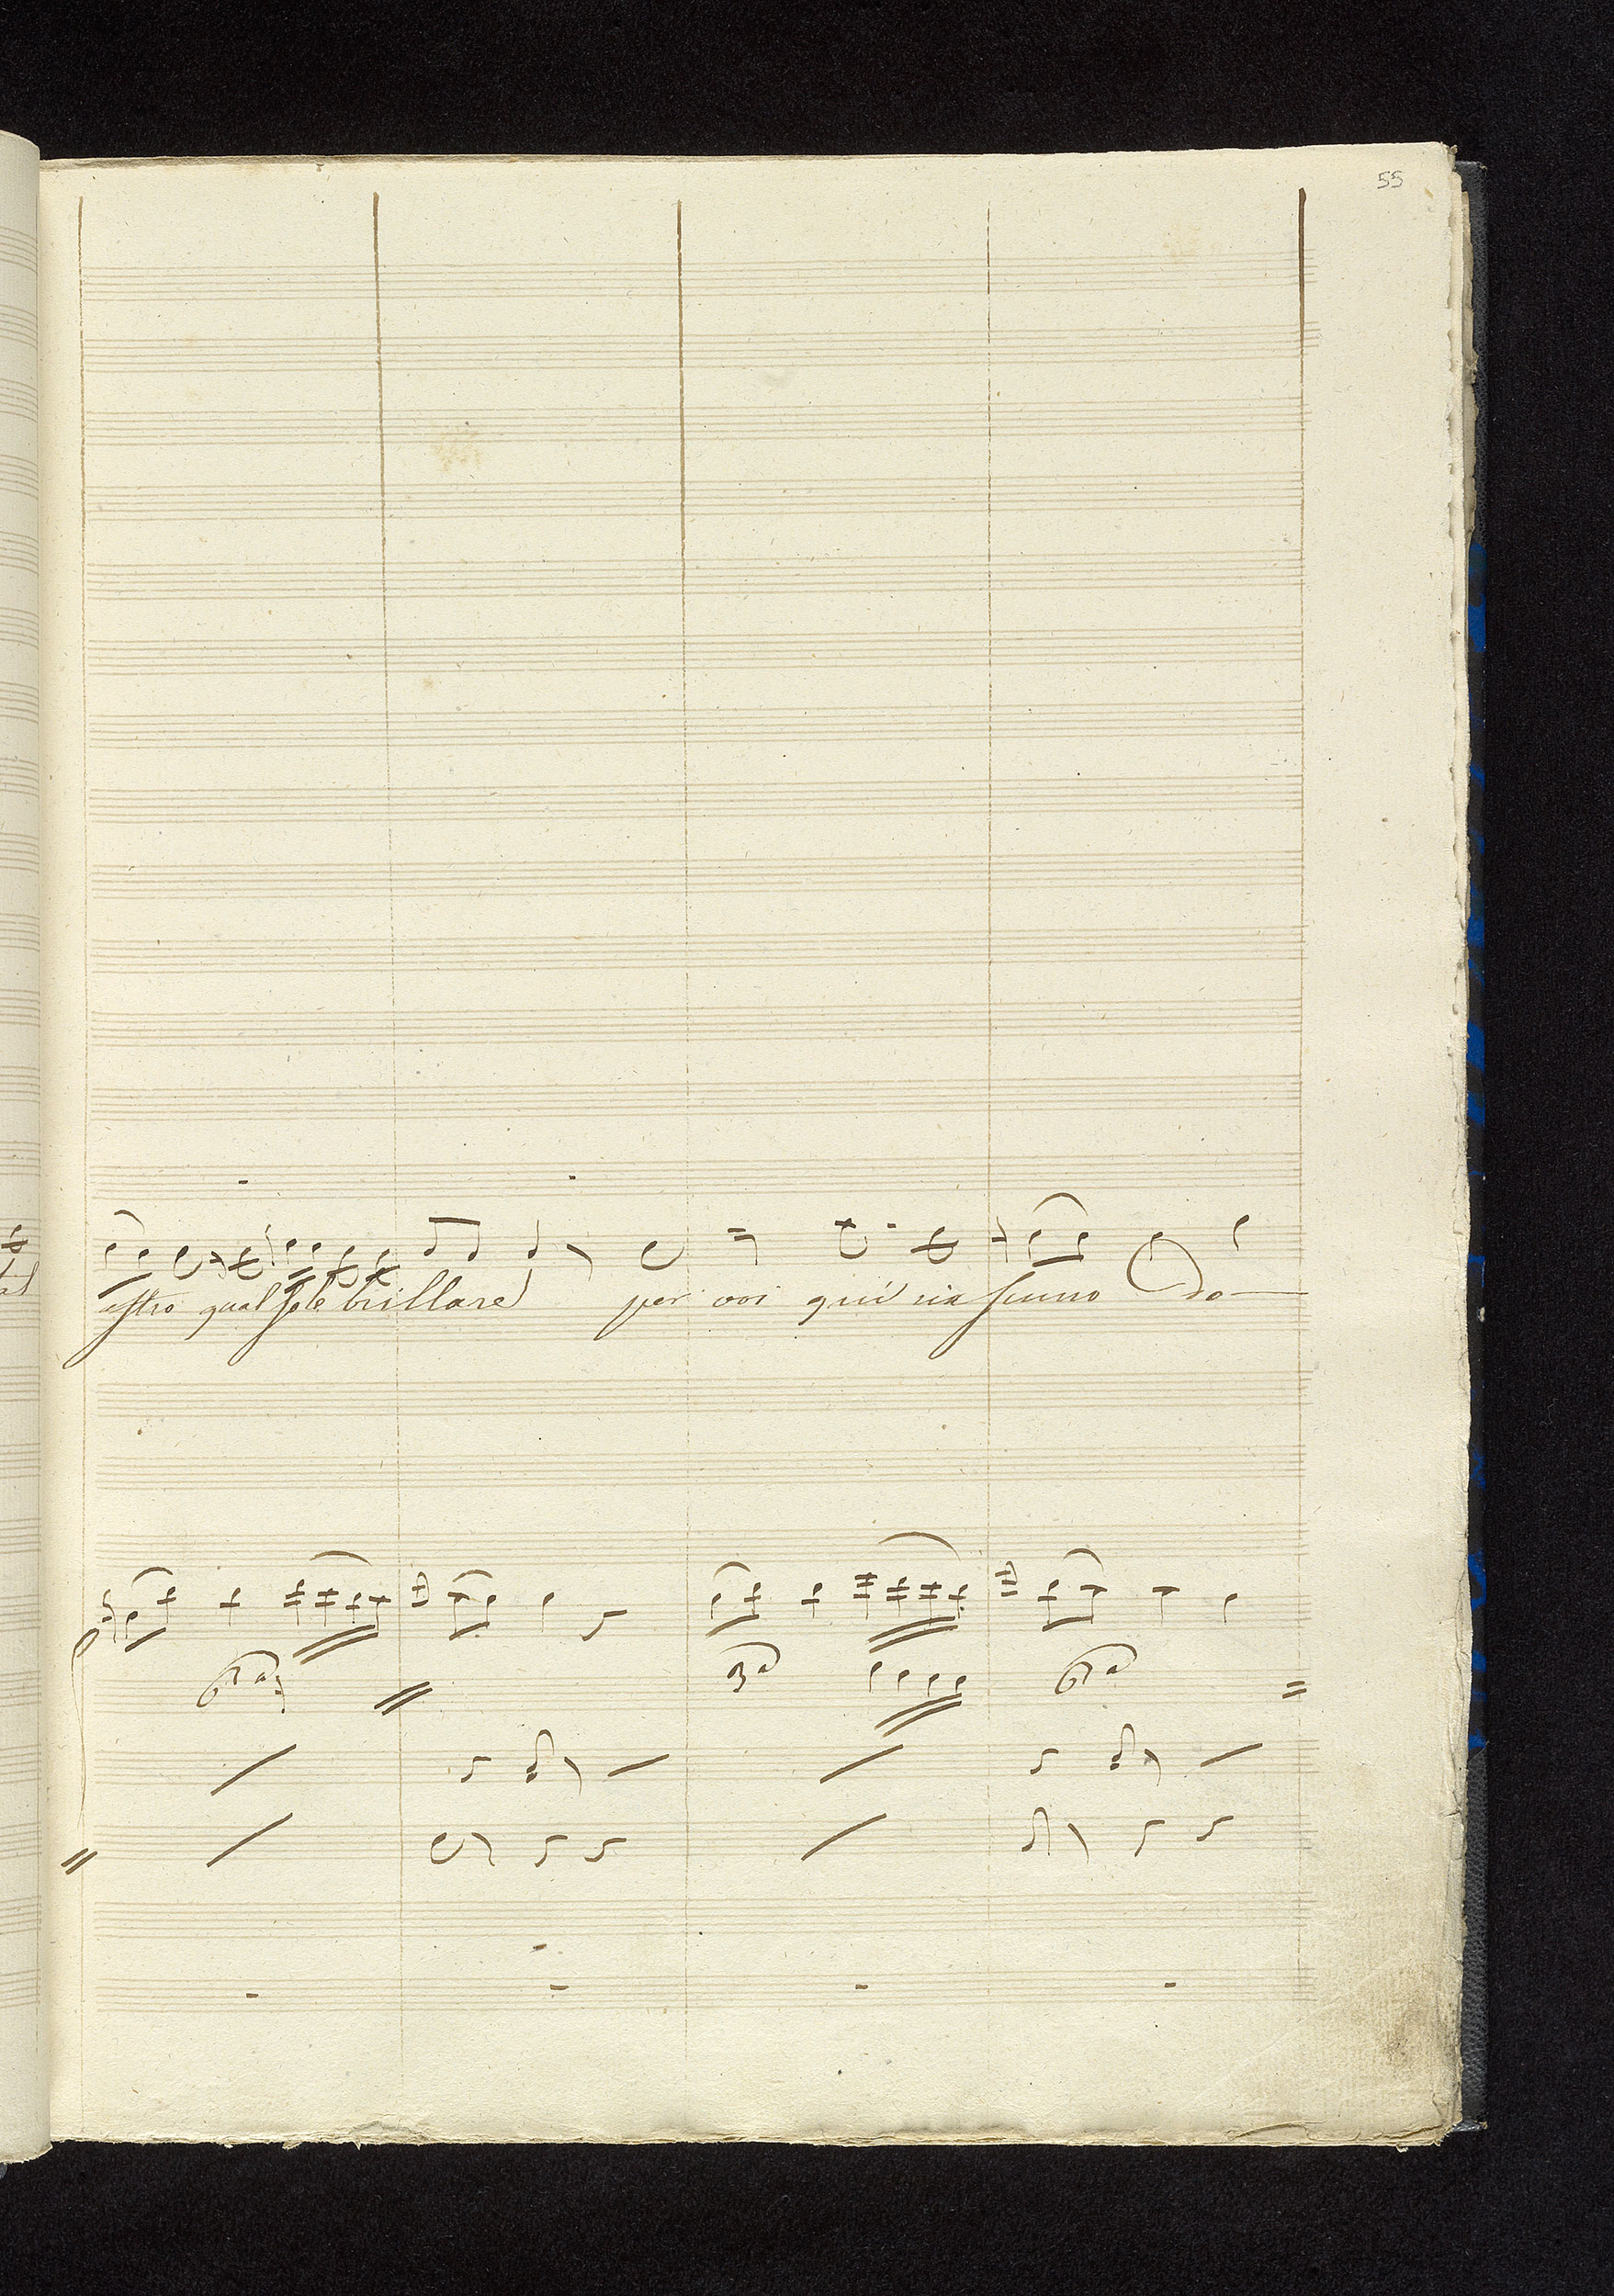 55
astro qual sole brillare per voi qui ciascuno Do-
6ª
3ª
6ª